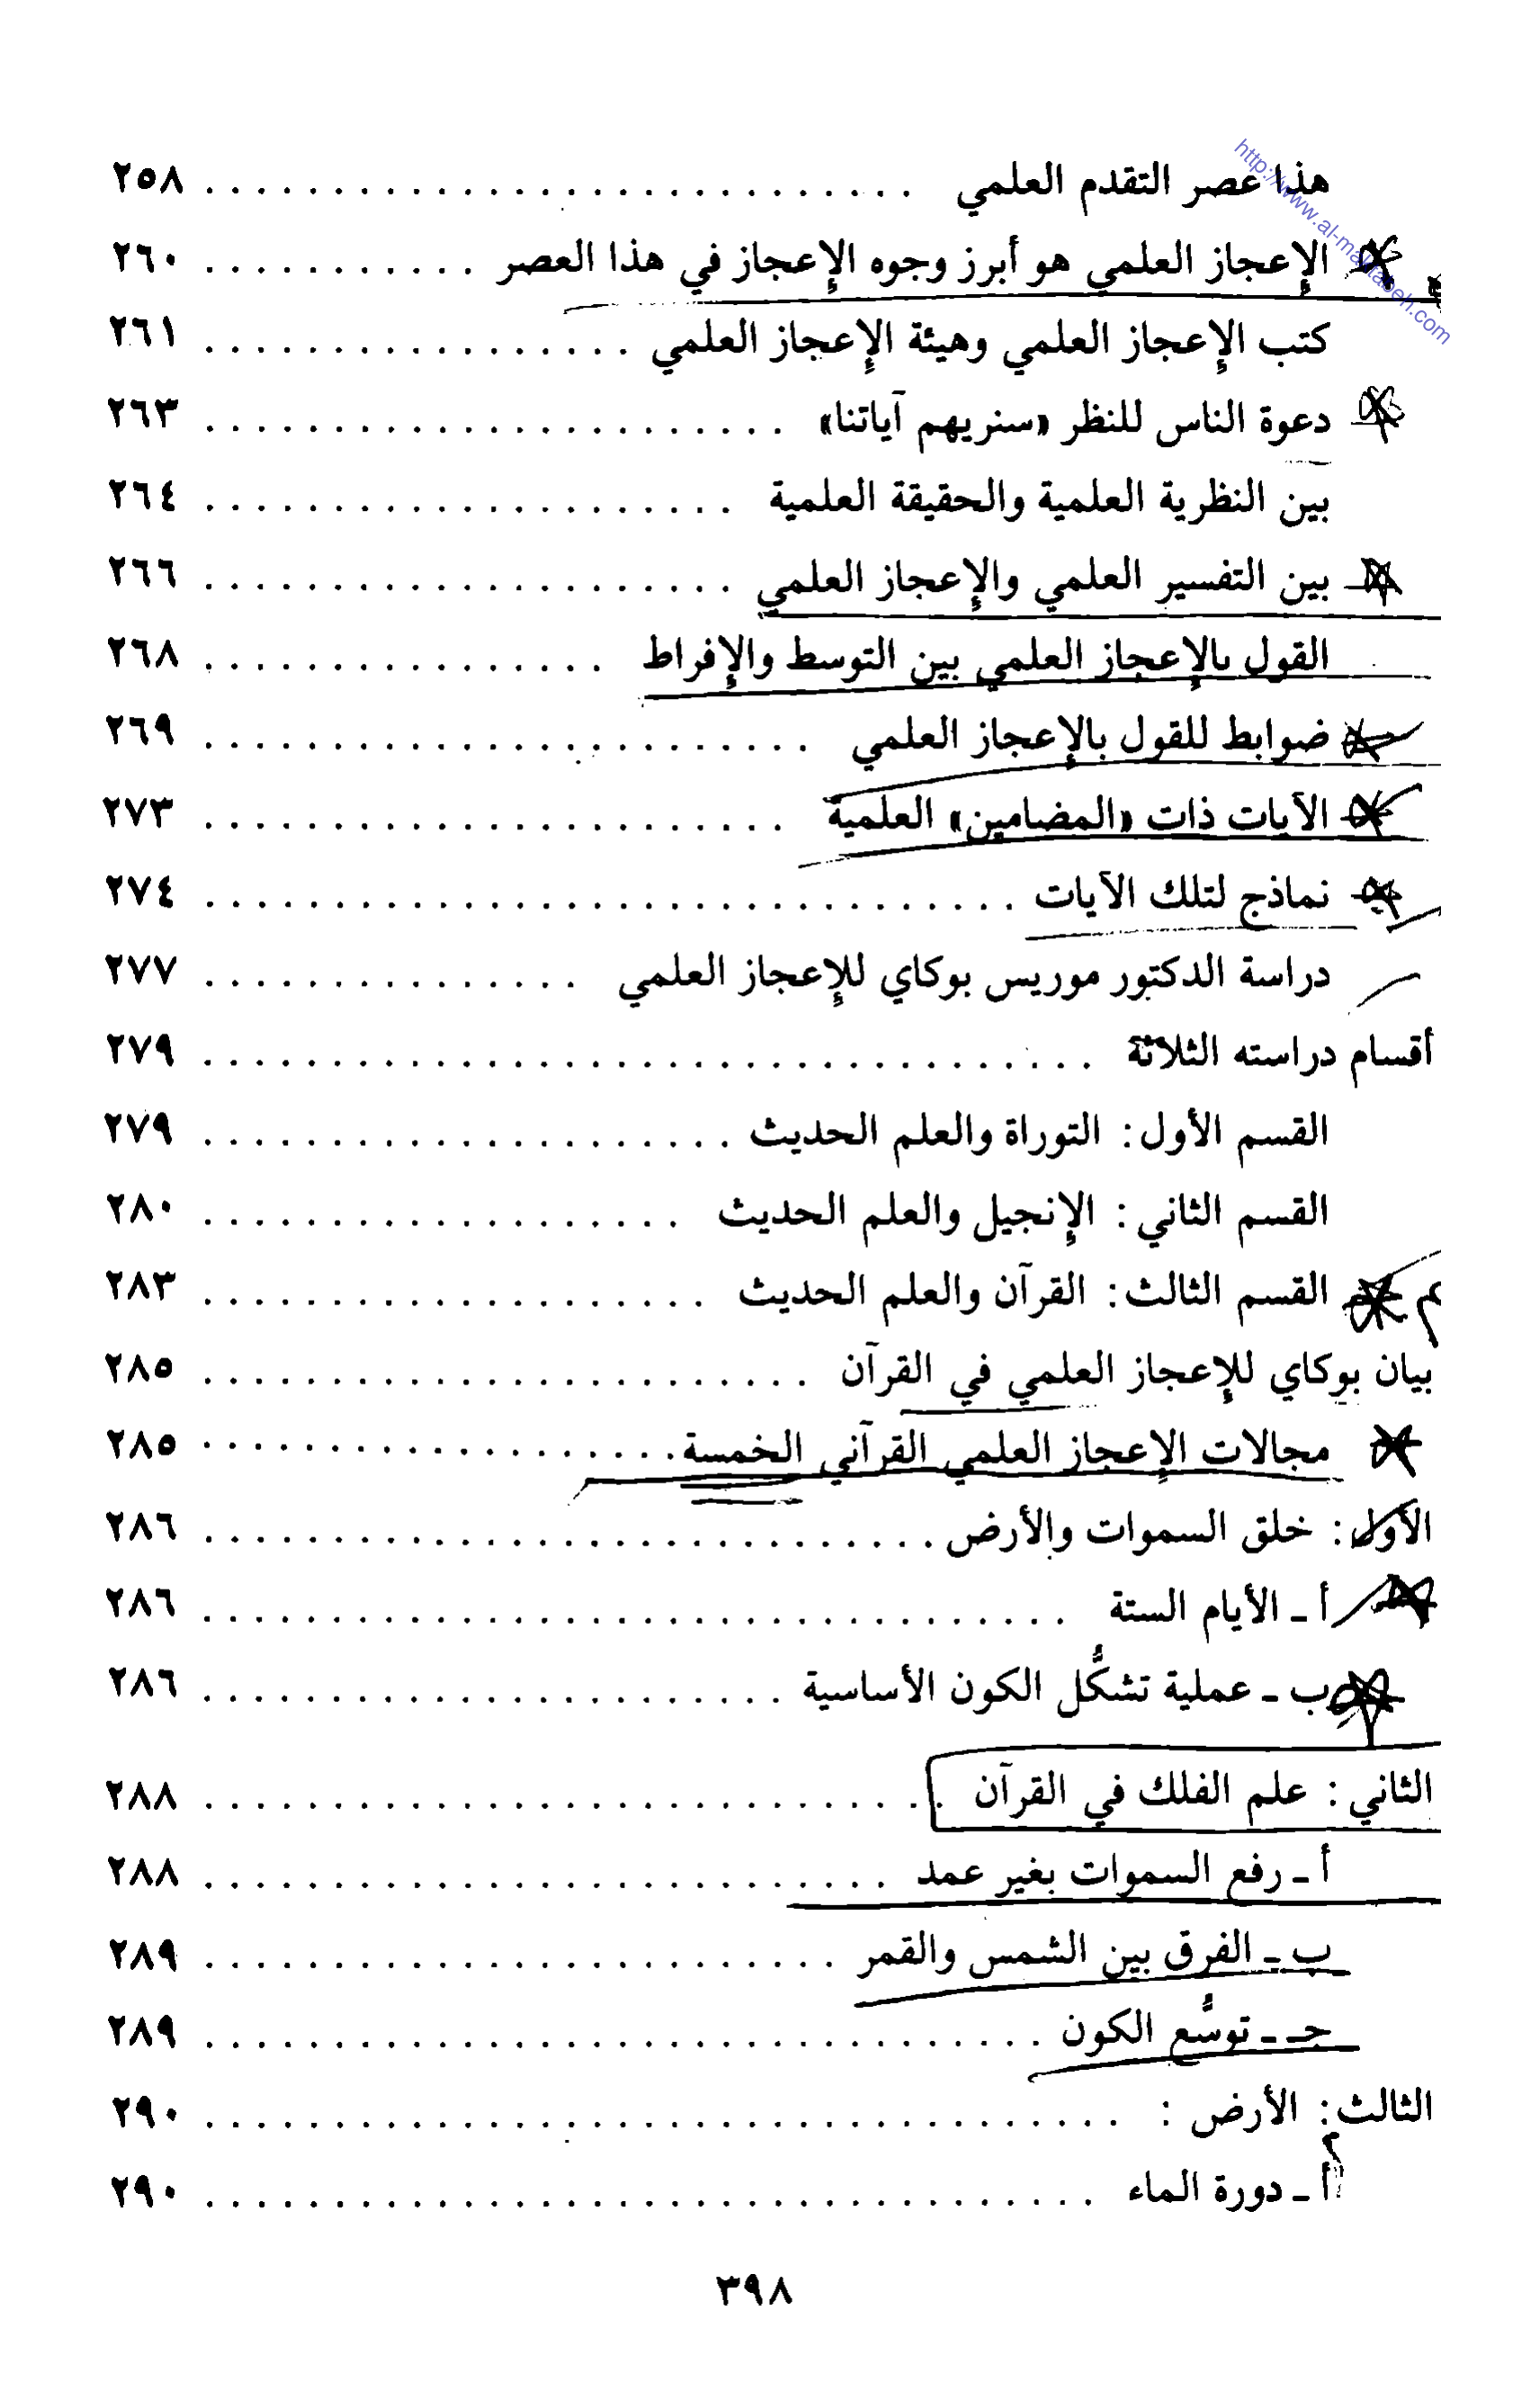 http://www.al-maktabeh.com
هذا عصر التقدم العلمي . . . . . . . . . . . . . . . . . . . . . . . . . . . . ٢٥٨
الإعجاز العلمي هو أبرز وجوه الإعجاز في هذا العصر . . . . . . . . . . . ٢٦٠
كتب الإعجاز العلمي وهيئة الإعجاز العلمي . . . . . . . . . . . . . . . . . ٢٦١
دعوة الناس للنظر «سنريهم آياتنا» . . . . . . . . . . . . . . . . . . . . . . . ٢٦٣
بين النظرية العلمية والحقيقة العلمية . . . . . . . . . . . . . . . . . . . . . ٢٦٤
بين التفسير العلمي والإعجاز العلمي . . . . . . . . . . . . . . . . . . . . . ٢٦٦
القول بالإعجاز العلمي بين التوسط والإفراط . . . . . . . . . . . . . . . . ٢٦٨
ضوابط للقول بالإعجاز العلمي . . . . . . . . . . . . . . . . . . . . . . . . ٢٦٩
الآيات ذات «المضامين» العلمية . . . . . . . . . . . . . . . . . . . . . . . ٢٧٣
نماذج لتلك الآيات . . . . . . . . . . . . . . . . . . . . . . . . . . . . . . . . ٢٧٤
دراسة الدكتور موريس بوكاي للإعجاز العلمي . . . . . . . . . . . . . . . ٢٧٧
أقسام دراسته الثلاثة . . . . . . . . . . . . . . . . . . . . . . . . . . . . . . . . . . . ٢٧٩
القسم الأول: التوراة والعلم الحديث . . . . . . . . . . . . . . . . . . . . . ٢٧٩
القسم الثاني: الإنجيل والعلم الحديث . . . . . . . . . . . . . . . . . . . ٢٨٠
القسم الثالث: القرآن والعلم الحديث . . . . . . . . . . . . . . . . . . . . ٢٨٣
بيان بوكاي للإعجاز العلمي في القرآن . . . . . . . . . . . . . . . . . . . . . . . . ٢٨٥
مجالات الإعجاز العلمي القرآني الخمسة . . . . . . . . . . . . . . . . . . . ٢٨٥
الأول: خلق السموات والأرض . . . . . . . . . . . . . . . . . . . . . . . . . . . . . ٢٨٦
أ ـ الأيام الستة . . . . . . . . . . . . . . . . . . . . . . . . . . . . . . . . . . ٢٨٦
ب ـ عملية تشكُّل الكون الأساسية . . . . . . . . . . . . . . . . . . . . . . . ٢٨٦
الثاني: علم الفلك في القرآن . . . . . . . . . . . . . . . . . . . . . . . . . . . . . ٢٨٨
أ ـ رفع السموات بغير عمد . . . . . . . . . . . . . . . . . . . . . . . . . . . ٢٨٨
ب ـ الفرق بين الشمس والقمر . . . . . . . . . . . . . . . . . . . . . . . . . ٢٨٩
جـ ـ توسُّع الكون . . . . . . . . . . . . . . . . . . . . . . . . . . . . . . . . . ٢٨٩
الثالث: الأرض : . . . . . . . . . . . . . . . . . . . . . . . . . . . . . . . . . . . . ٢٩٠
أ ـ دورة الماء . . . . . . . . . . . . . . . . . . . . . . . . . . . . . . . . . . . ٢٩٠
٣٩٨